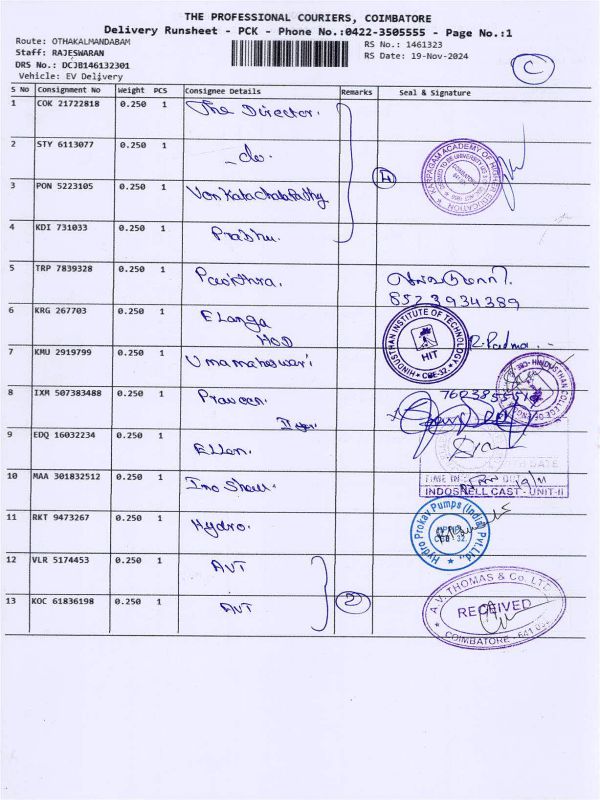 THE PROFESSIONAL COURIERS, COIMBATORE
Delivery Runsheet - PCK - Phone No.:0422-3505555 - Page No.:1
Route: OTHAKALMANDABAM
RS No.: 1461323
Staff: RAJESWARAN
RS Date: 19-Nov-2024
DRS No.: DCJB146132301
Vehicle: EV Delivery
C
S No Consignment No Weight PCS Consignee Details Remarks Seal & Signature
1 COK 21722818 0.250 1 The Director.
2 STY 6113077 0.250 1 -do-
4
KARPAGAM ACADEMY OF HIGHER EDUCATION
3 PON 5223105 0.250 1 Venkatachalapathy
4 KDI 731033 0.250 1 Prabhu.
5 TRP 7839328 0.250 1 Pavithra.
8523934389
6 KRG 267703 0.250 1 Elanga
HOD
HINDUSTHAN INSTITUTE OF TECHNOLOGY
HIT
CBE-32
7 KMU 2919799 0.250 1 Umamaheswari
HINDUSTHAN COLLEGE OF
8 IXM 507383488 0.250 1 Praveen.
II year.
9 EDQ 16032234 0.250 1 Ellen.
10 MAA 301832512 0.250 1 Ino Shell.
TIME IN
19/11
INDOSHELL CAST - UNIT-II
11 RKT 9473267 0.250 1 Hydro.
Hydro Prokav Pumps (India) Pvt.Ltd.,
CBE - 32.
12 VLR 5174453 0.250 1 AVT
13 KOC 61836198 0.250 1 AVT
2
A.V. THOMAS & Co. LTD.
RECEIVED
COIMBATORE - 641